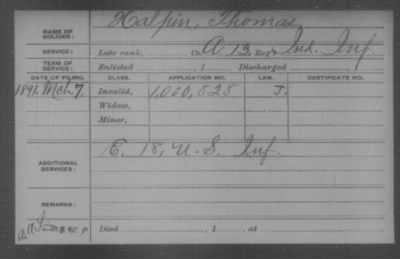 NAME OF SOLDIER: Halpin, Thomas
SERVICE: Late rank, Co. A 13 Reg't Ind. Inf.
TERM OF SERVICE: Enlisted , 1 Discharged , 1
DATE OF FILING. CLASS. APPLICATION NO. LAW. CERTIFICATE NO.
1891. Mch 7. Invalid, 1,000,828 J.
Widow,
Minor,
ADDITIONAL SERVICES: E. 18, U.S. Inf.
REMARKS:
Died , 1 , at